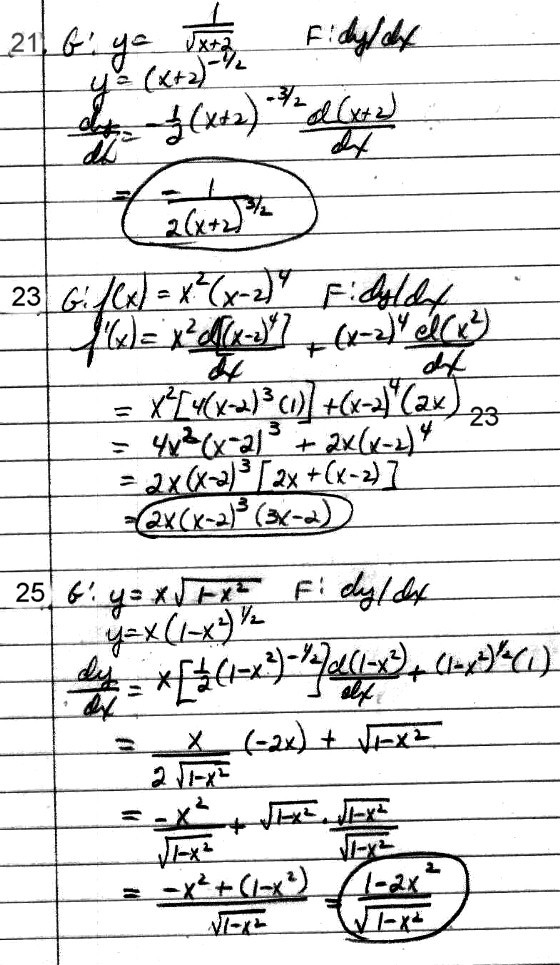 21. G: y = 1/√(x+2) F: dy/dx
y = (x+2)^(-1/2)
dy/dx = -1/2 (x+2)^(-3/2) d(x+2)/dx
= -1/(2(x+2)^(3/2))
23 G: f(x) = x²(x-2)⁴ F: dy/dx
f'(x) = x² d[(x-2)⁴]/dx + (x-2)⁴ d(x²)/dx
= x²[4(x-2)³(1)] + (x-2)⁴(2x) 23
= 4x²(x-2)³ + 2x(x-2)⁴
= 2x(x-2)³[2x+(x-2)]
= 2x(x-2)³(3x-2)
25. G: y = x√(1-x²) F: dy/dx
y = x(1-x²)^(1/2)
dy/dx = x[1/2(1-x²)^(-1/2)] d(1-x²)/dx + (1-x²)^(1/2)(1)
= x/(2√(1-x²)) (-2x) + √(1-x²)
= -x²/√(1-x²) + √(1-x²) · √(1-x²)/√(1-x²)
= (-x²+(1-x²))/√(1-x²) = (1-2x²)/√(1-x²)